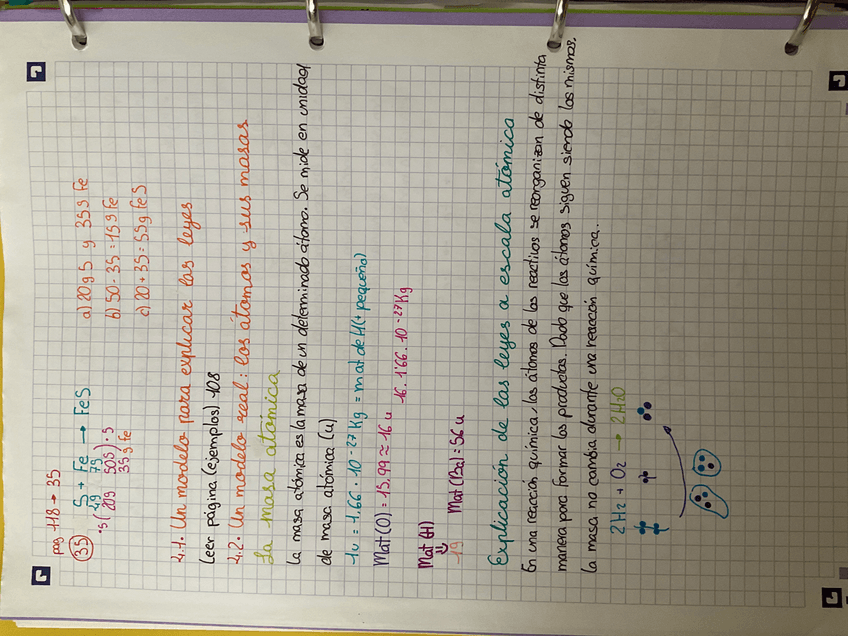 pag 118 → 35
35 S + Fe → FeS
4g 7g
·5 ( 20g 50g ) ·5
35g Fe
a) 20g S y 35g Fe
b) 50 - 35 = 15g Fe
c) 20 + 35 = 55g FeS
4.1. Un modelo para explicar las leyes
Leer página (ejemplos) 108
4.2. Un modelo real: los átomos y sus masas
La masa atómica
La masa atómica es la masa de un determinado átomo. Se mide en unidad
de masa atómica (u)
1u = 1,66 · 10 -27 Kg = mat de H (+ pequeño)
Mat (O) = 15,99 ≈ 16 u
16 · 1'66 · 10 -27 Kg
Mat (H)
Mat (Ba) = 56 u
Explicación de las leyes a escala atómica
En una reacción química, los átomos de los reactivos se reorganizan de distinta
manera para formar los productos. Dado que los átomos siguen siendo los mismos,
la masa no cambia durante una reacción química.
2H2 + O2 → 2H2O